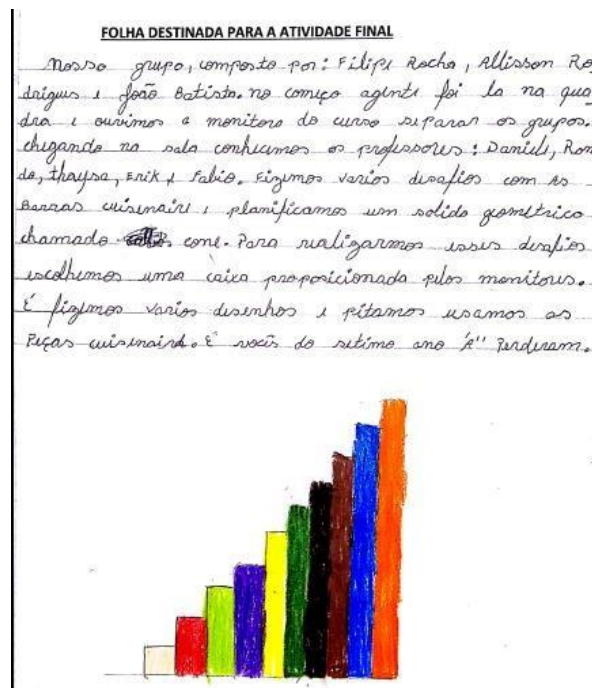 FOLHA DESTINADA PARA A ATIVIDADE FINAL
Nosso grupo, composto por: Filipe Rocha, Allisson Ro
drigues e João Batista. no começo agente foi la na qua
dra e ouvimos a monitora do curso separar os grupos.
chegando na sala conhecemos os professores: Daniele, Ron
do, thaysa, Erik e Fabio. Fizemos varios desafios com As
Barras cuisenaire, planificamos um solido geometrico
chamado cone. Para realizarmos esses desafios
escolhemos uma caixa proposicionada pelos monitores.
É fizemos varios desenhos e pitamos usamos as
Peças cuisenaire. É vocês do setimo ano "A" Perderam.